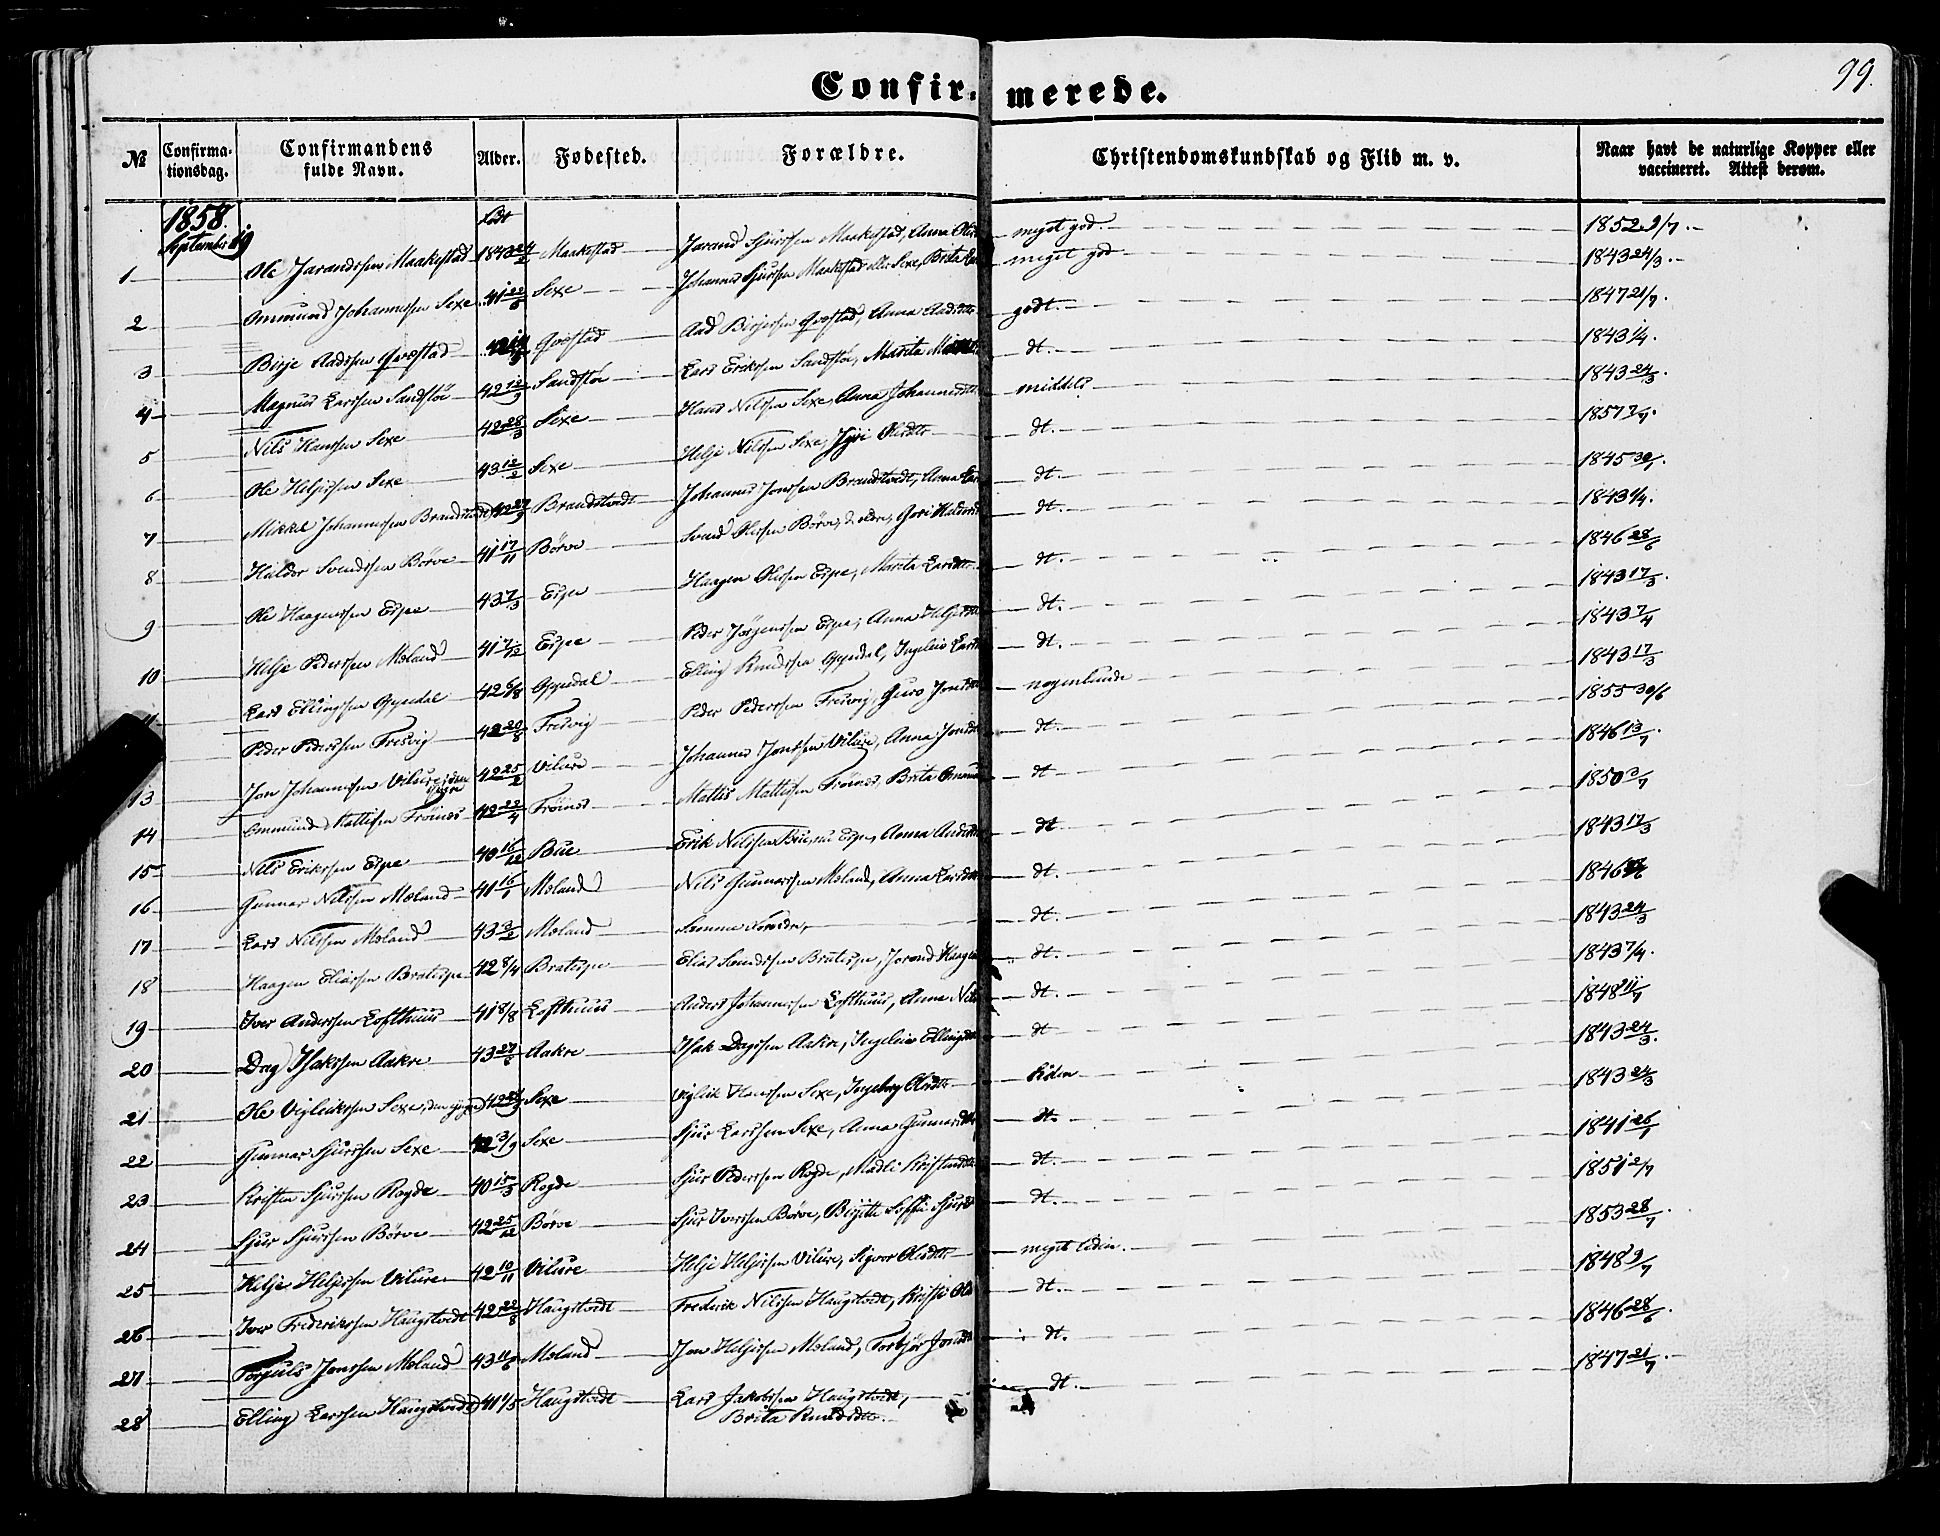 99.
Confirmerede.
№ Confirmationsdag. Confirmandens fulde Navn. Alder. Fødested. Forældre. Christendomskundskab og Flid m. v. Naar havt de naturlige Kopper eller vaccineret. Attest derom.
1858. September 19 født
1 Ole Jarandssen Maakestad 1843 24/2 Maakestad Jarand Sjurssen Maakestad, Anna meget god. 1852 9/7.
2 Ommund Johannessen Sexe 41 Sexe Johannes Sjurssen Maakestad eller Sexe, Brita meget god 1843 24/3.
3 Birje Aadssen Qvæstad Qvæstad Aad Birjessen Qvæstad, Anna godt. 1847 21/7.
4 Magnus Larssen Sandstöe 42 12/9 Sandstöe Lars Erikssen Sandstöe, Marita dt. 1843 1/4.
5 Nils Hanssen Sexe 42 28/3 Sexe Hans Nilssen Sexe, Anna Johannesdtr middels 1843 24/3.
6 Ole Heljessen Sexe 43 12/2 Sexe Helje Nilssen Sexe, Olsdtr dt. 1857
7 Mikkel Johannessen Brandstvedt 42 27/9 Brandstvedt Johannes Jonssen Brandstvedt, Anna dt. 1845
8 Haldor Svendssen Börve 41 17/11 Börve Svend Olessen Börve, d. eldre, Gori dt. 1843
9 Ole Haagenssen Espe 43 7/3 Espe Haagen Olessen Espe, Marita Larsdtr dt. 1846 28/6
10 Helje Pederssen Moland 41 7/12 Espe Peder Jörgenssen Espe, Anna dt. 1843 17/3.
Lars Ellingssen Oppedal 42 6/8 Oppedal Elling Knudssen Oppedal, Ingeleiv dt. 1843 7/4
Peder Pederssen Fresvig 42 20/8 Fresvig Peder Pederssen Fresvig, Guro Jonsdtr nogenlunde 1843 17/3
13 Jon Johannessen Vilure, den yngre 42 25/2 Vilure Johannes Jonssen Vilure, Anna Jonsdtr dt. 1855 30/6
14 Ommund Mattissen Fröines 42 22/4 Fröines Mattis Mattissen Fröines, Brita dt 1846 13/7.
15 Nils Erikssen Espe 40 16/12 Bue Erik Nilssen Bue, nu Espe, Anna dt 1850 2/7
16 Gunnar Nilssen Moland 41 16/1 Moland Nils Gunnarssen Moland, Anna Larsdtr dt. 1843 17/3
17 Lars Nilssen Moland 43 3/2 Moland Samme Forældre, dt. 1846
18 Haagen Eliassen Bratespe 42 8/4 Bratespe Elias Svendssen Bratespe, Jorand dt. 1843 24/3
19 Iver Anderssen Lofthuus 41 8/8 Lofthuus Anders Johannessen Lofthuus, Anna dt. 1843 7/4.
20 Dag Isakssen Aakre 43 Aakre Isak Dagssen Aakre, Ingeleiv Ellingsdtr dt 1848 11/7
21 Ole Vigleikssen Sexe, den yngre Sexe Vigleik Hanssen Sexe, Ingeborg Olsdtr liden 1843 24/3.
22 Gunnar Sjurssen Sexe 42 3/9 Sexe Sjur Larssen Sexe, Anna Gunnarsdtr dt. 1843 24/3
23 Kristen Sjurssen Rogde 40 15/3 Rogde Sjur Pederssen Rogde, Madli dt. 1841 26/1
24 Sjur Sjurssen Börve 42 25/12 Börve Sjur Iverssen Börve, Birjitte dt. 1851 2/7
25 Helje Heljessen Vilure 42 10/11 Vilure Helje Heljessen Vilure, Sigvor Olsdtr meget liden. 1853 28/7.
26 Iver Frederikssen Haugstvedt 42 22/8 Haugstvedt Frederik Nilssen Haugstvedt, dt. 1848 3/7
27 Torjuls Jonssen Moland 43 11/6 Moland Jon Heljessen Moland, Torbjör Jonsdtr dt. 1846 28/6.
28 Elling Larssen Haugstvedt 41 1/5 Haugstvedt Lars Jakobssen Haugstvedt, dt. 1847 21/7.
Brita Knudsdtr.